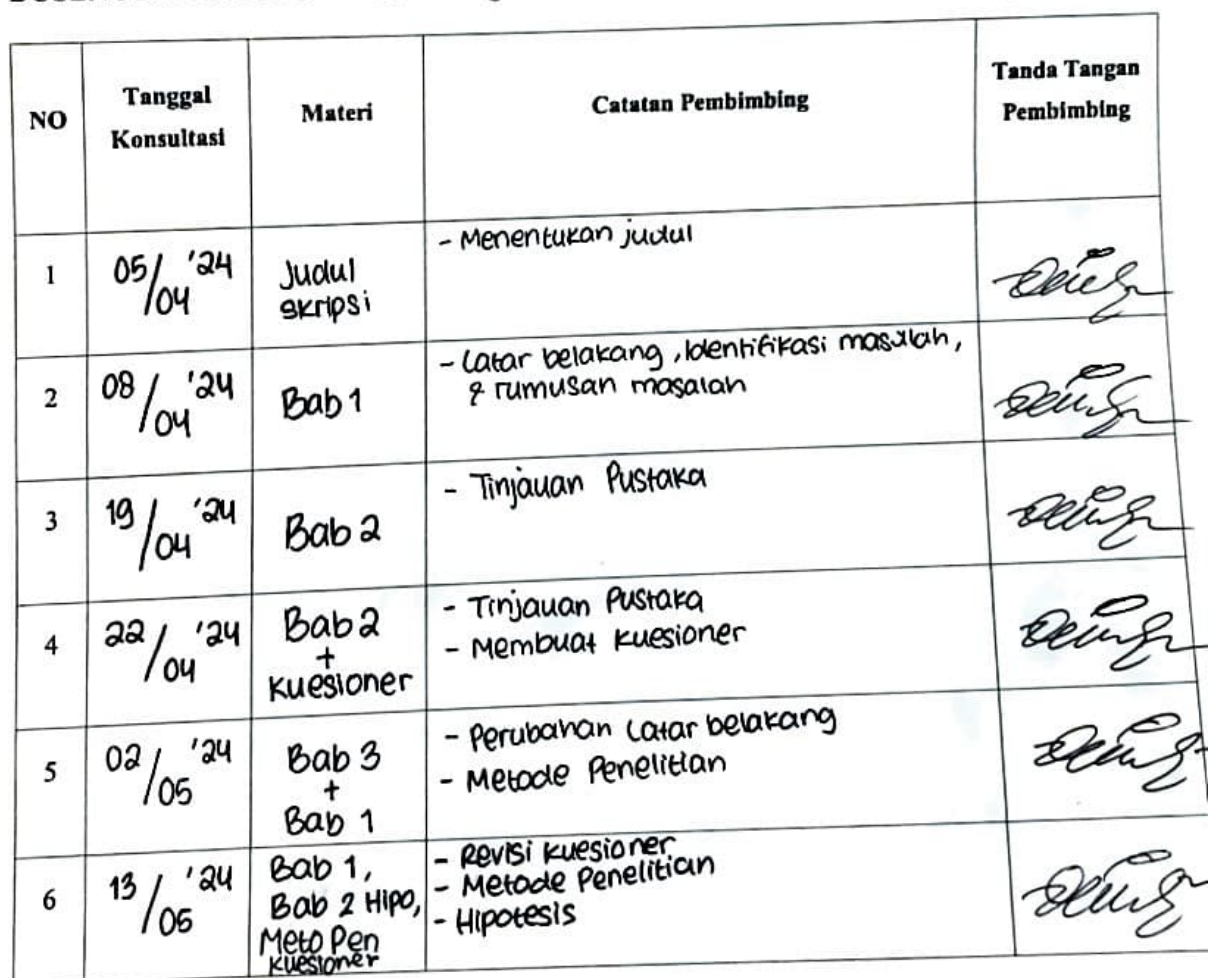 NO
Tanggal
Konsultasi
Materi
Catatan Pembimbing
Tanda Tangan
Pembimbing
1
05/04 '24
Judul
skripsi
- Menentukan judul
2
08/04 '24
Bab 1
- Latar belakang, Identifikasi masalah,
& rumusan masalah
3
19/04 '24
Bab 2
- Tinjauan Pustaka
4
22/04 '24
Bab 2
+
Kuesioner
- Tinjauan Pustaka
- Membuat kuesioner
5
02/05 '24
Bab 3
+
Bab 1
- Perubahan Latar belakang
- Metode Penelitian
6
13/05 '24
Bab 1,
Bab 2 Hipo,
Meto Pen
Kuesioner
- Revisi kuesioner
- Metode Penelitian
- Hipotesis